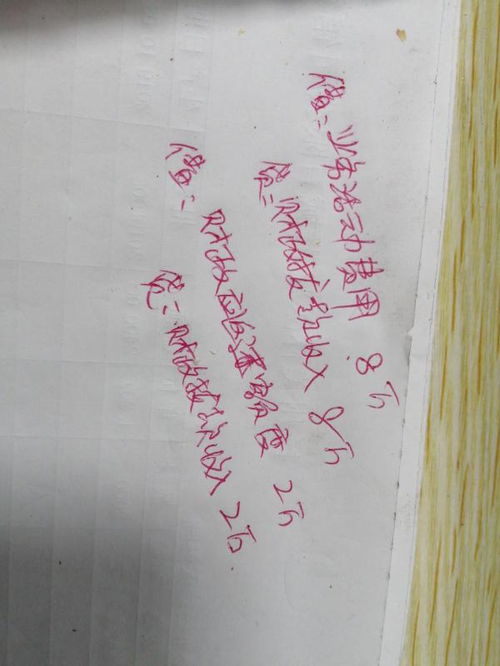 借：业务活动费用 8万
贷：财政拨款收入 8万
借：财政应返还额度 2万
贷：财政拨款收入 2万